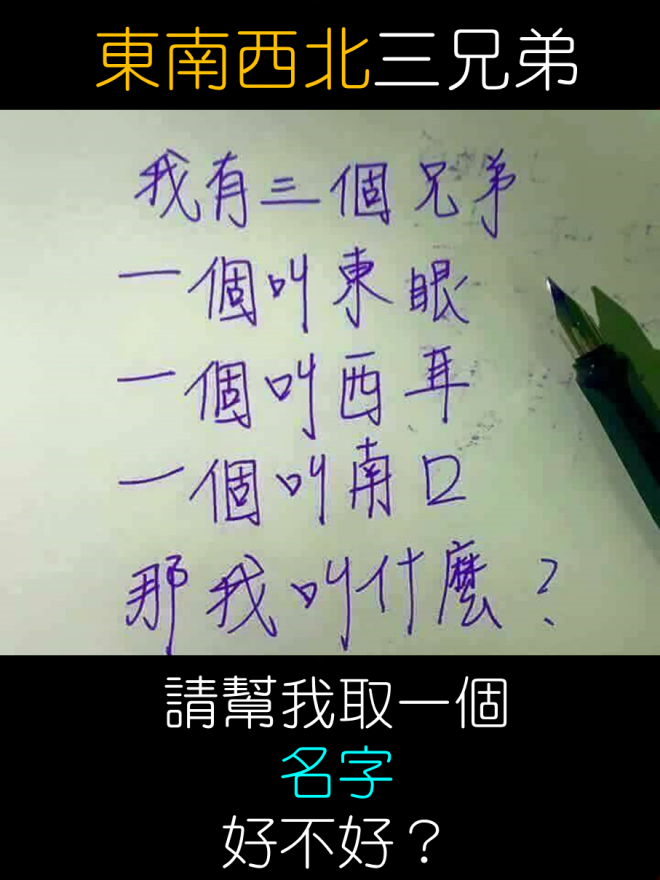 東南西北三兄弟
我有三個兄弟
一個叫東眼
一個叫西耳
一個叫南口
那我叫什麼？
請幫我取一個
名字
好不好？